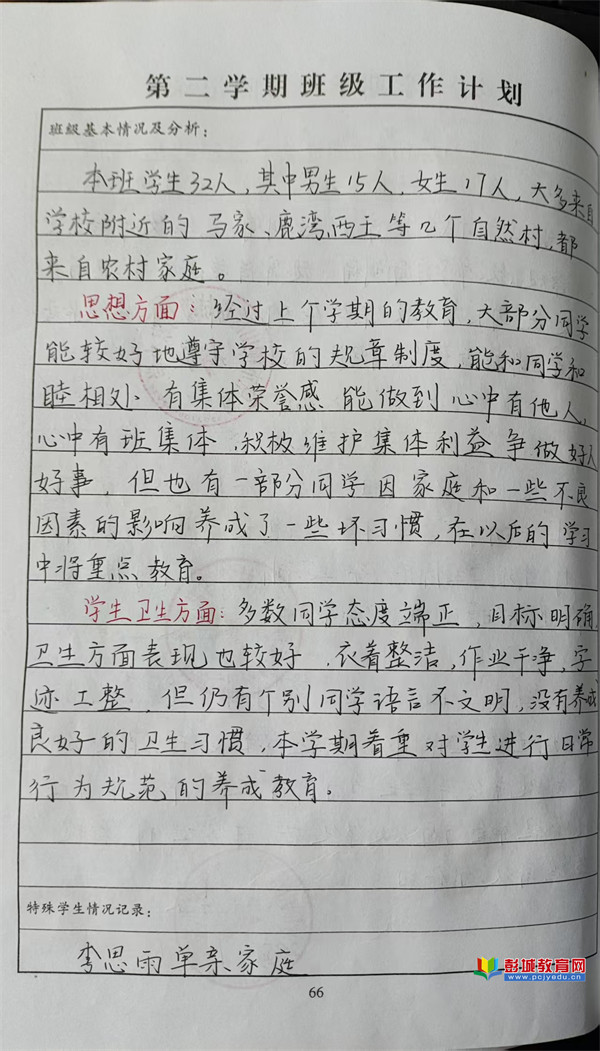 第二学期班级工作计划
班级基本情况及分析：
本班学生32人，其中男生15人，女生17人，大多来自
学校附近的马家、鹿湾西王等几个自然村，都
来自农村家庭。
思想方面：经过上个学期的教育，大部分同学
能较好地遵守学校的规章制度，能和同学和
睦相处，有集体荣誉感，能做到心中有他人，
心中有班集体，积极维护集体利益争做好人
好事，但也有一部分同学因家庭和一些不良
因素的影响养成了一些坏习惯，在以后的学习
中将重点教育。
学生卫生方面：多数同学态度端正，目标明确，
卫生方面表现也较好，衣着整洁，作业干净，字
迹工整，但仍有个别同学语言不文明，没有养成
良好的卫生习惯，本学期着重对学生进行日常
行为规范的养成教育。
特殊学生情况记录：
李思雨单亲家庭
彭城教育网
www.pcjyedu.cn
66